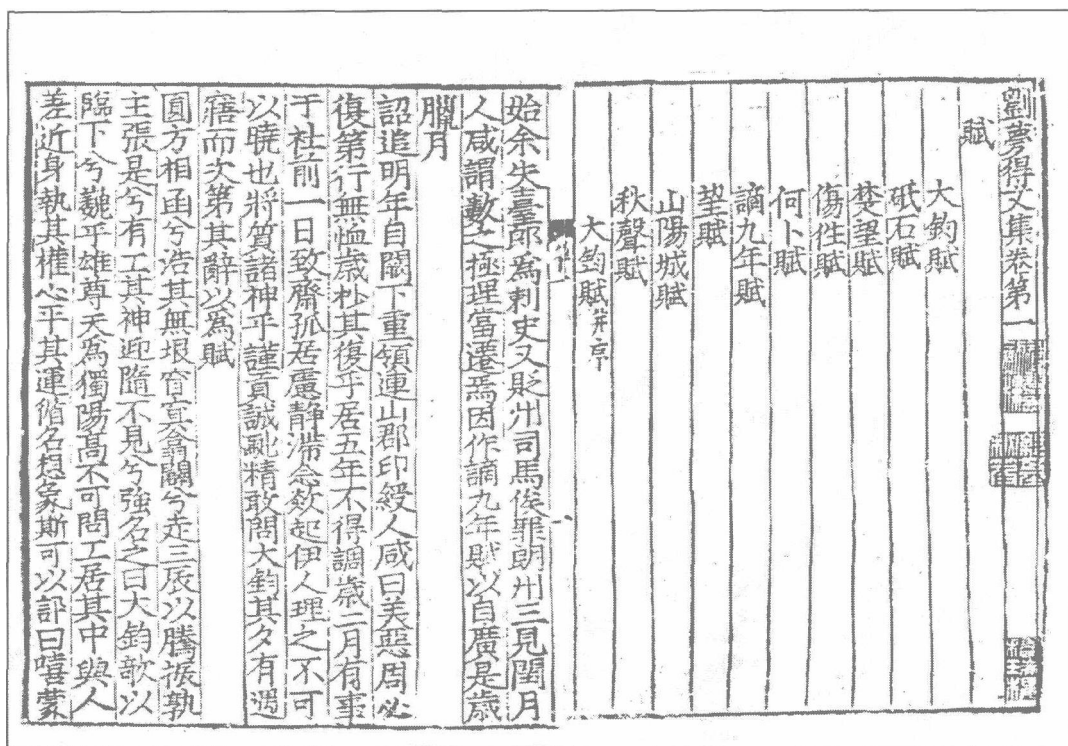 劉夢得文集卷第一
賦
大鈞賦
砥石賦
楚望賦
傷往賦
何卜賦
謫九年賦
望賦
山陽城賦
秋聲賦
大鈞賦并序
始余失臺郎為刺史又貶州司馬俟罪朗州三見閏月
人咸謂數之極理當遷焉因作謫九年賦以自廣是歲
臘月
詔追明年自闕下重領連山郡印綬人咸曰美惡周必
復第行無恤歲杪其復乎居五年不得調歲二月有事
于社前一日致齋孤居慮静滯念欻起伊人理之不可
以曉也將質諸神乎謹貢誠馳精敢問大鈞其夕有遇
寤而次第其辭以為賦
圓方相函兮浩其無垠窅冥翕闢兮走三辰以騰振孰
主張是兮有工其神迎隨不見兮強名之曰大鈞歘以
臨下兮巍乎雄尊天為獨陽高不可問工居其中與人
差近身執其權心平其運循名想象斯可以訊曰嘻蒙